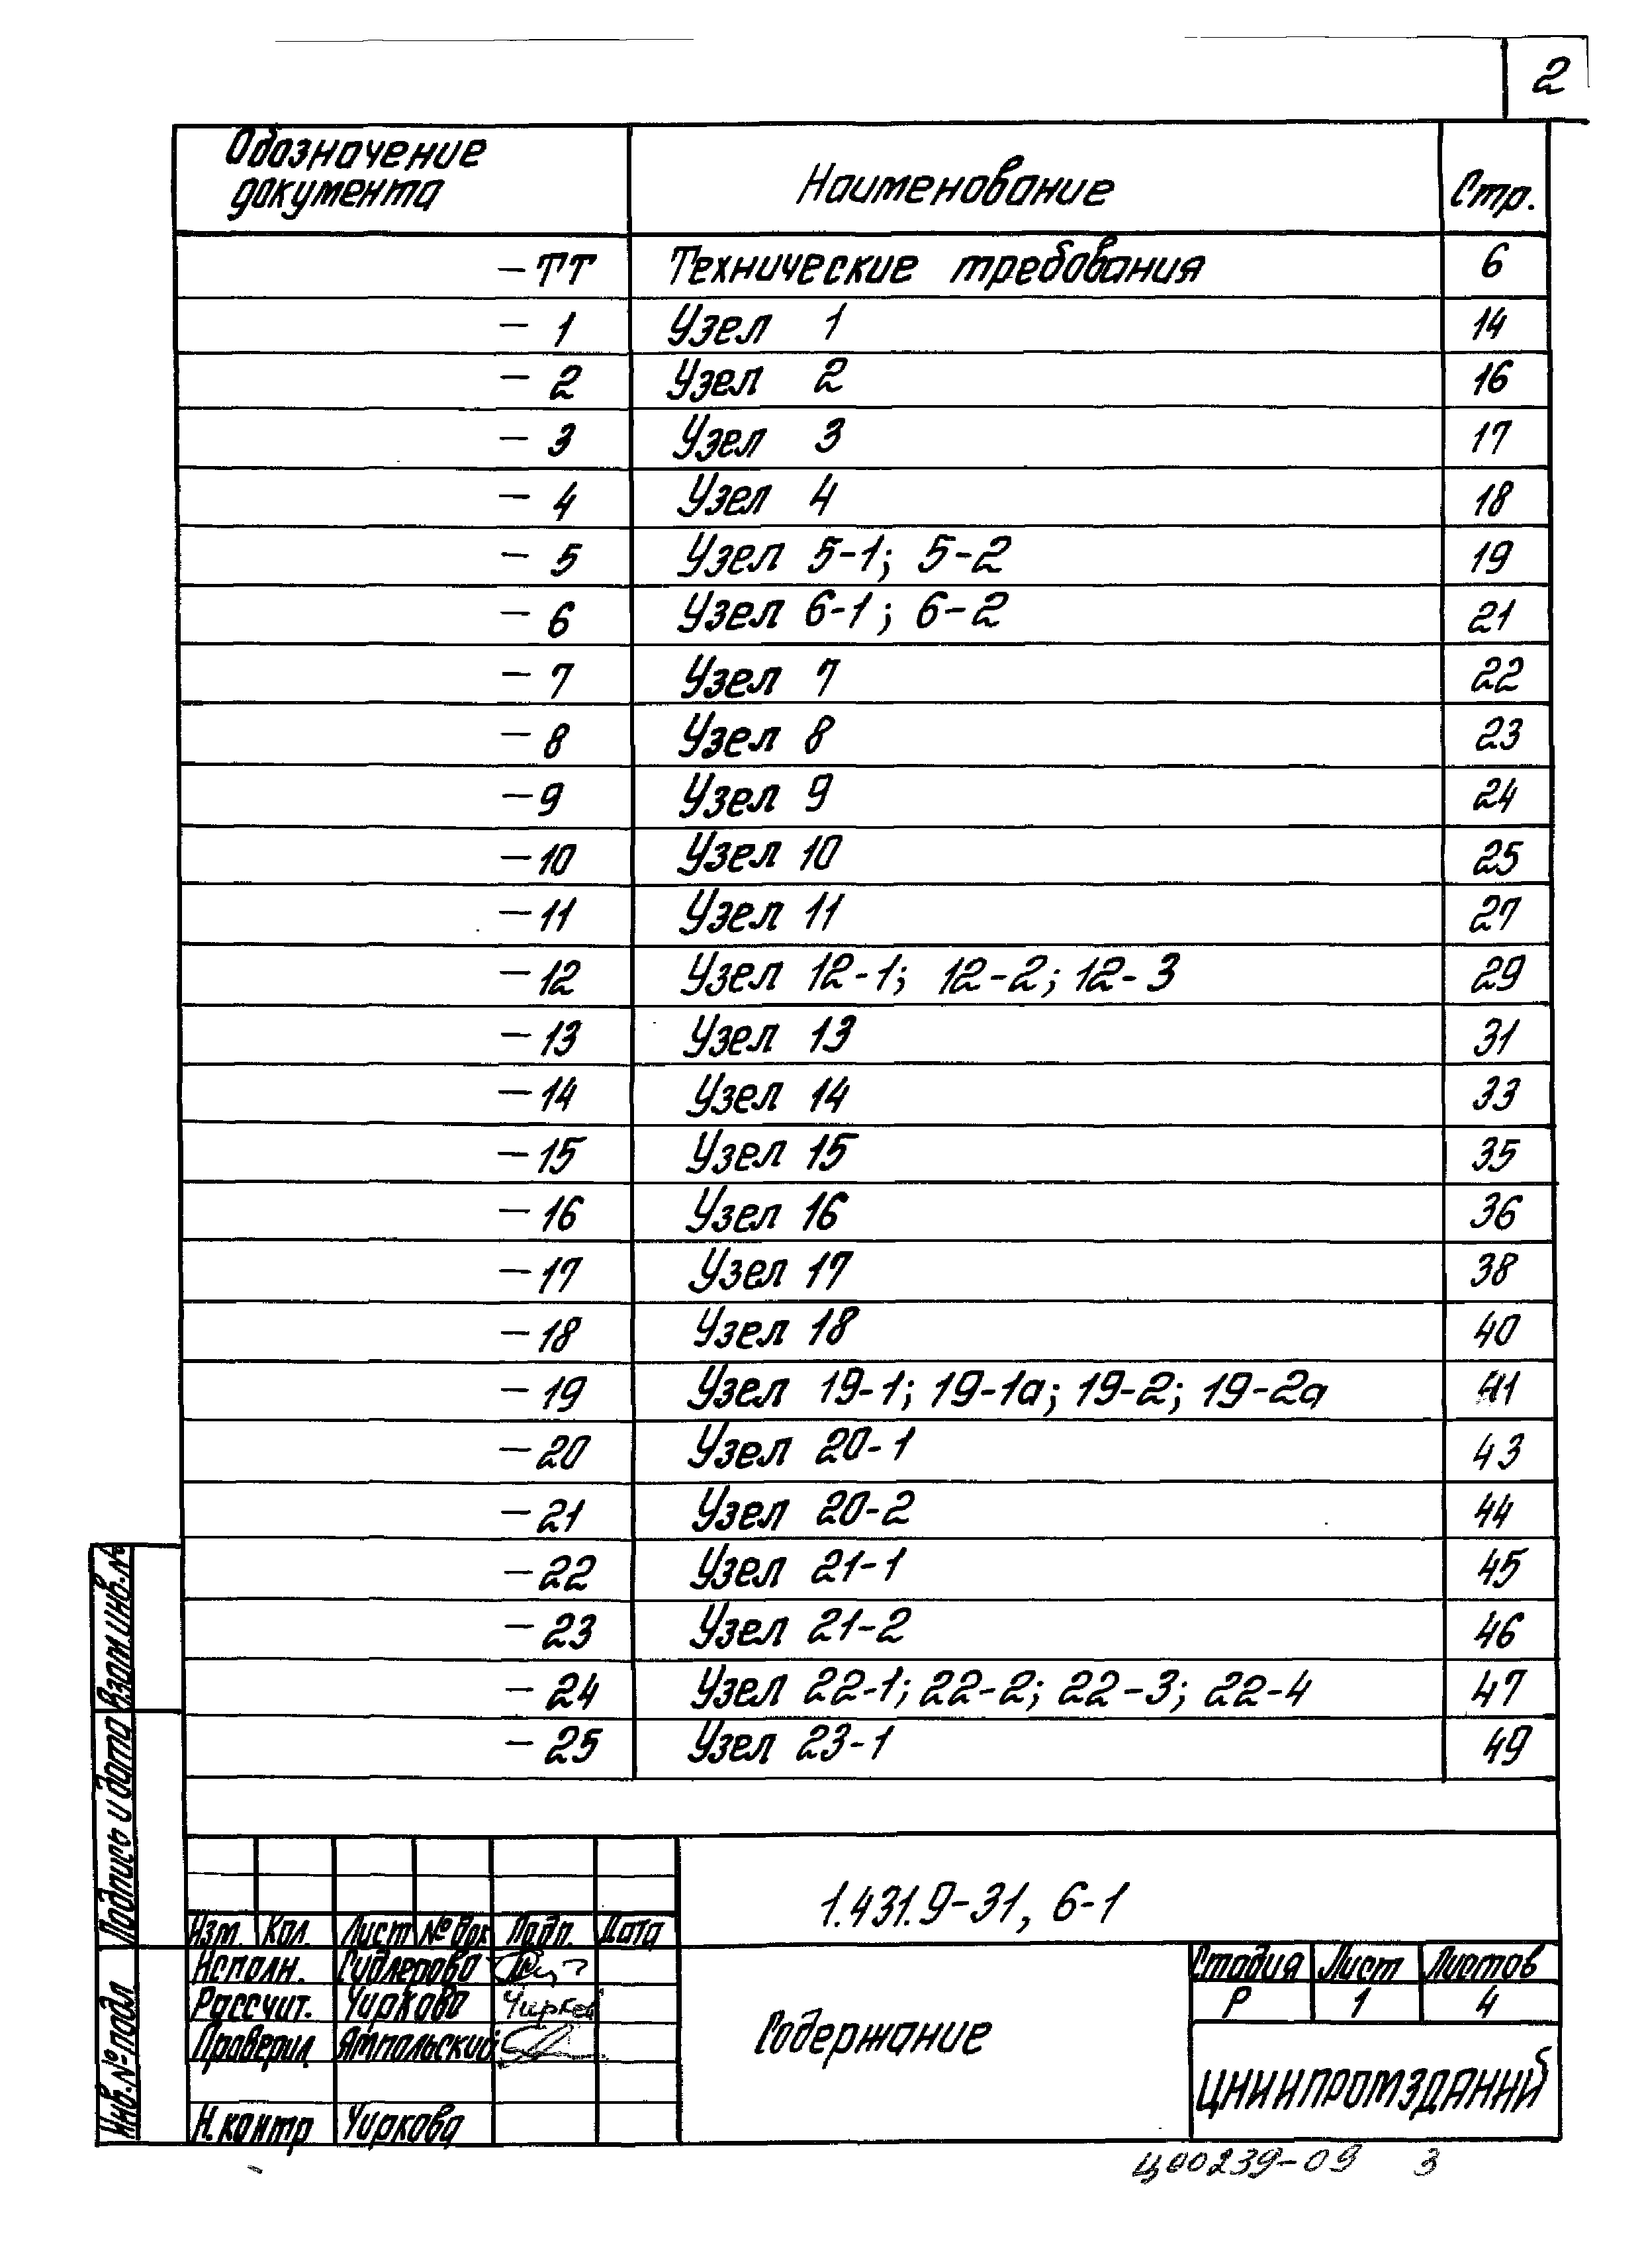 2
Обозначение документа Наименование Стр.
-ТТ Технические требования 6
- 1 Узел 1 14
- 2 Узел 2 16
- 3 Узел 3 17
- 4 Узел 4 18
- 5 Узел 5-1; 5-2 19
- 6 Узел 6-1; 6-2 21
- 7 Узел 7 22
- 8 Узел 8 23
- 9 Узел 9 24
- 10 Узел 10 25
- 11 Узел 11 27
- 12 Узел 12-1; 12-2; 12-3 29
- 13 Узел 13 31
- 14 Узел 14 33
- 15 Узел 15 35
- 16 Узел 16 36
- 17 Узел 17 38
- 18 Узел 18 40
- 19 Узел 19-1; 19-1а; 19-2; 19-2а 41
- 20 Узел 20-1 43
- 21 Узел 20-2 44
- 22 Узел 21-1 45
- 23 Узел 21-2 46
- 24 Узел 22-1; 22-2; 22-3; 22-4 47
- 25 Узел 23-1 49
Взам.инв.№
Подпись и дата
Инв.№подл
1.431.9-31, 6-1
Изм. Кол. Лист №док Подп. Дата
Исполн. Сидлерова
Рассчит. Чиркова
Проверил Ямпольский
Н.контр Чиркова
Содержание
Стадия Лист Листов
Р 1 4
ЦНИИПРОМЗДАНИЙ
Ц00239-09 3